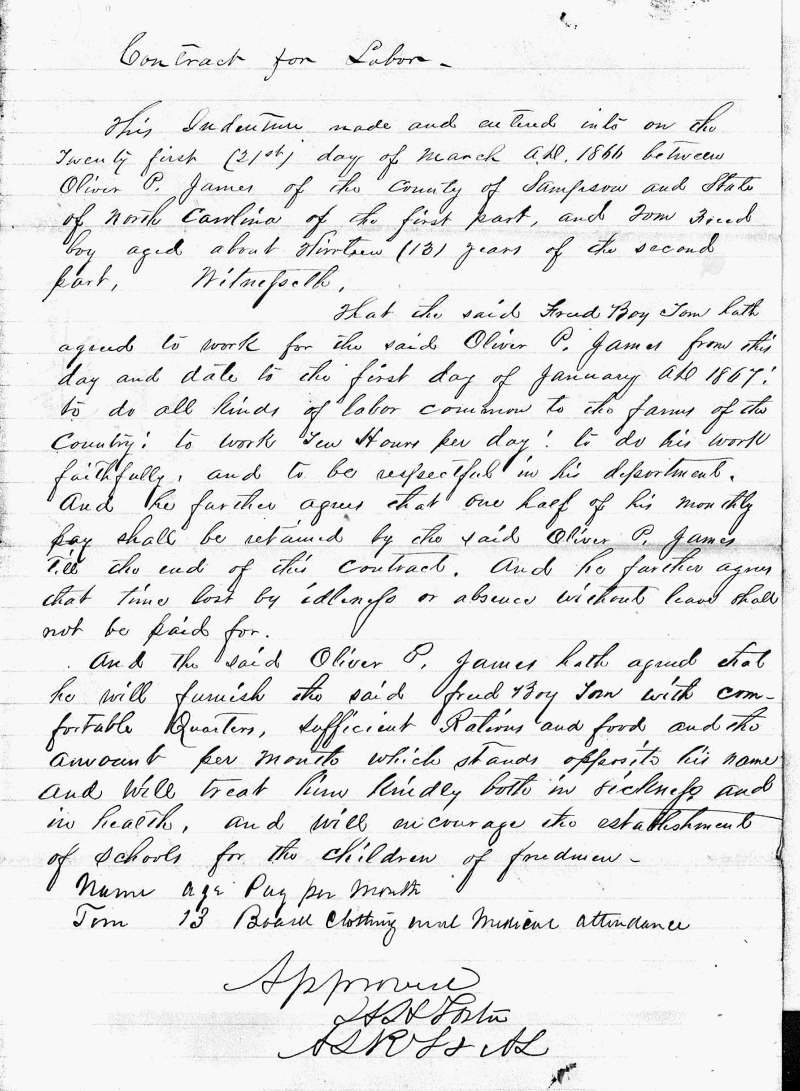 Contract for Labor -
This Indenture made and entered into on the
Twenty first (21st) day of March A.D. 1866 between
Oliver P. James of the County of Sampson and State
of North Carolina of the first part, and Tom Freed
boy aged about Thirteen (13) years of the second
part, Witnesseth,
That the said Freed Boy Tom hath
agreed to work for the said Oliver P. James from this
day and date to the first day of January AD 1867:
to do all kinds of labor common to the farms of the
Country: to work Ten Hours per day: to do his work
faithfully, and to be respectful in his deportment.
And he further agrees that one half of his monthly
pay shall be retained by the said Oliver P. James
Till the end of this contract. And he further agrees
that time lost by idleness or absence without leave shall
not be paid for.
And the said Oliver P. James hath agreed that
he will furnish the said freed Boy Tom with com-
fortable Quarters, sufficient Rations and food and the
amount per month which stands opposite his name
and Will treat him kindly both in sickness and
in health, and will encourage the establishment
of schools for the children of freedmen -
Name age Pay per Month
Tom 13 Board Clothing and Medical attendance
Approved